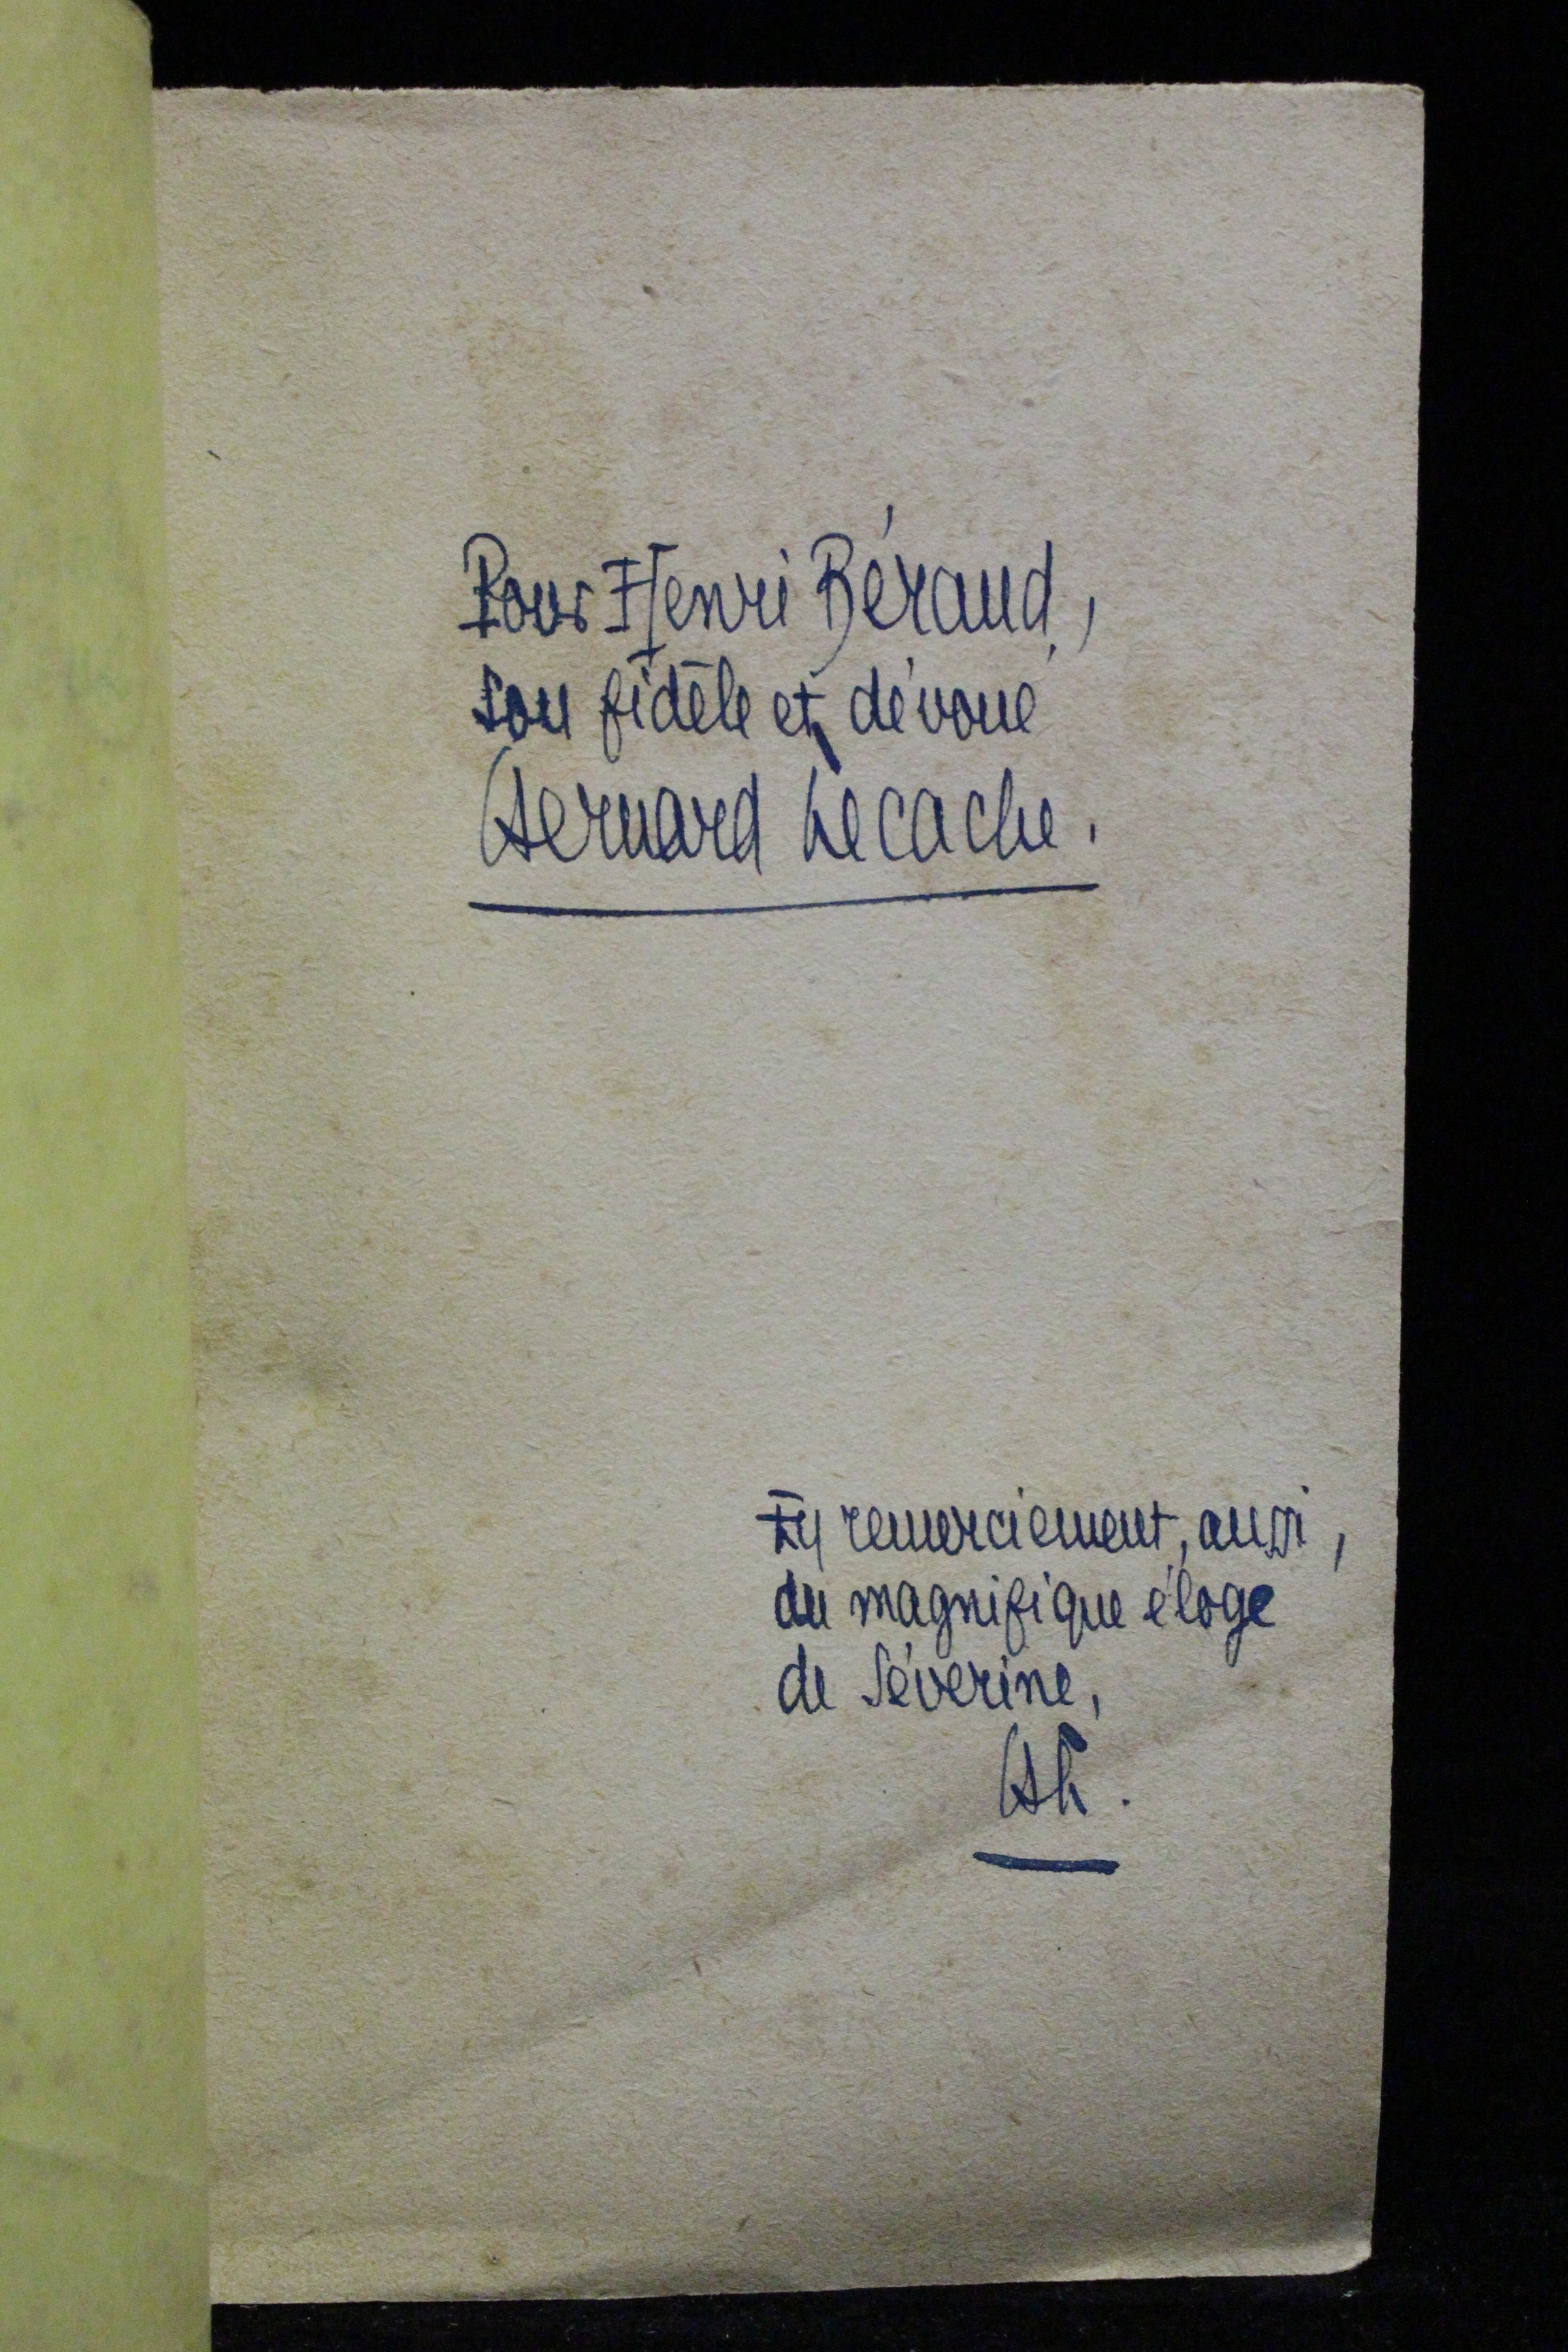 Pour Henri Béraud,
son fidèle et dévoué
Bernard Lecache.
En remerciement, aussi,
du magnifique éloge
de Séverine,
BL.